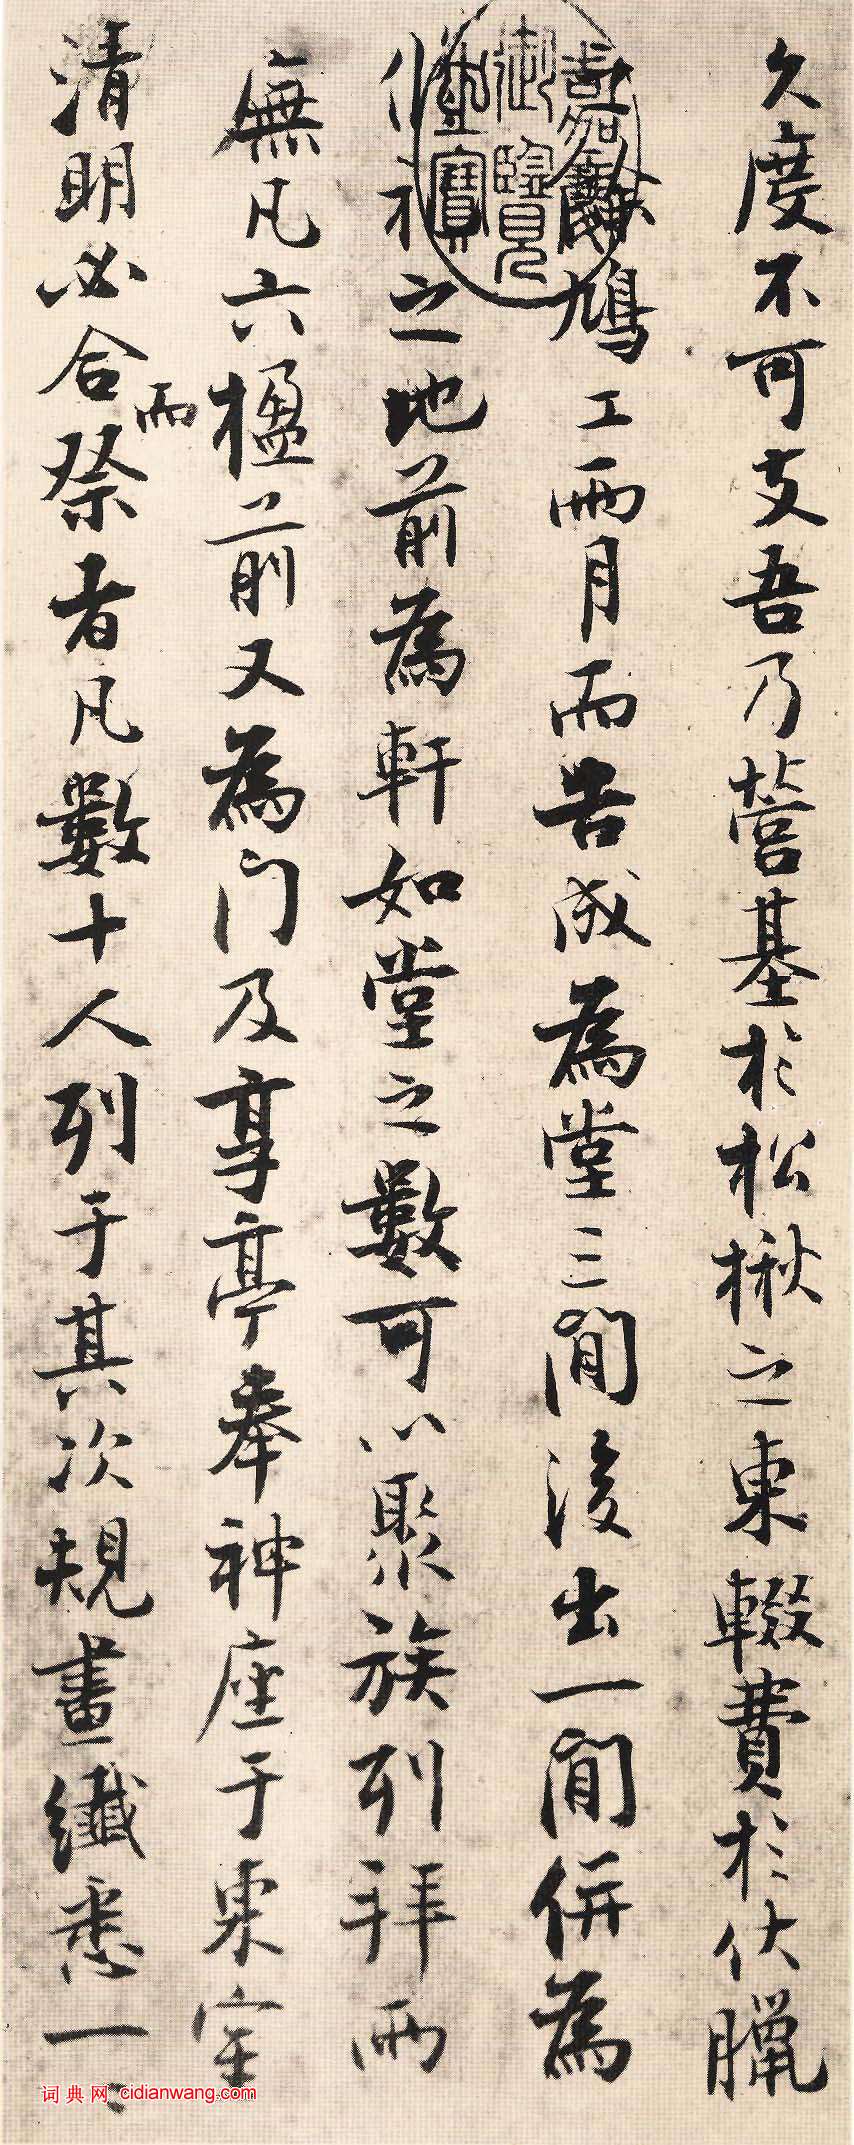 久度不可支吾乃營基於松楸之東輟費於伏臘
餘鳩工兩月而告成為堂三間後出一間併為
修祀之地前為軒如堂之數可以聚族列拜兩
廡凡六楹前又為門及享亭奉神座于東室
清明必合而祭者凡數十人列于其次規畫纖悉一〻
嘉慶
御覽
之寶
词典网 cidianwang.com